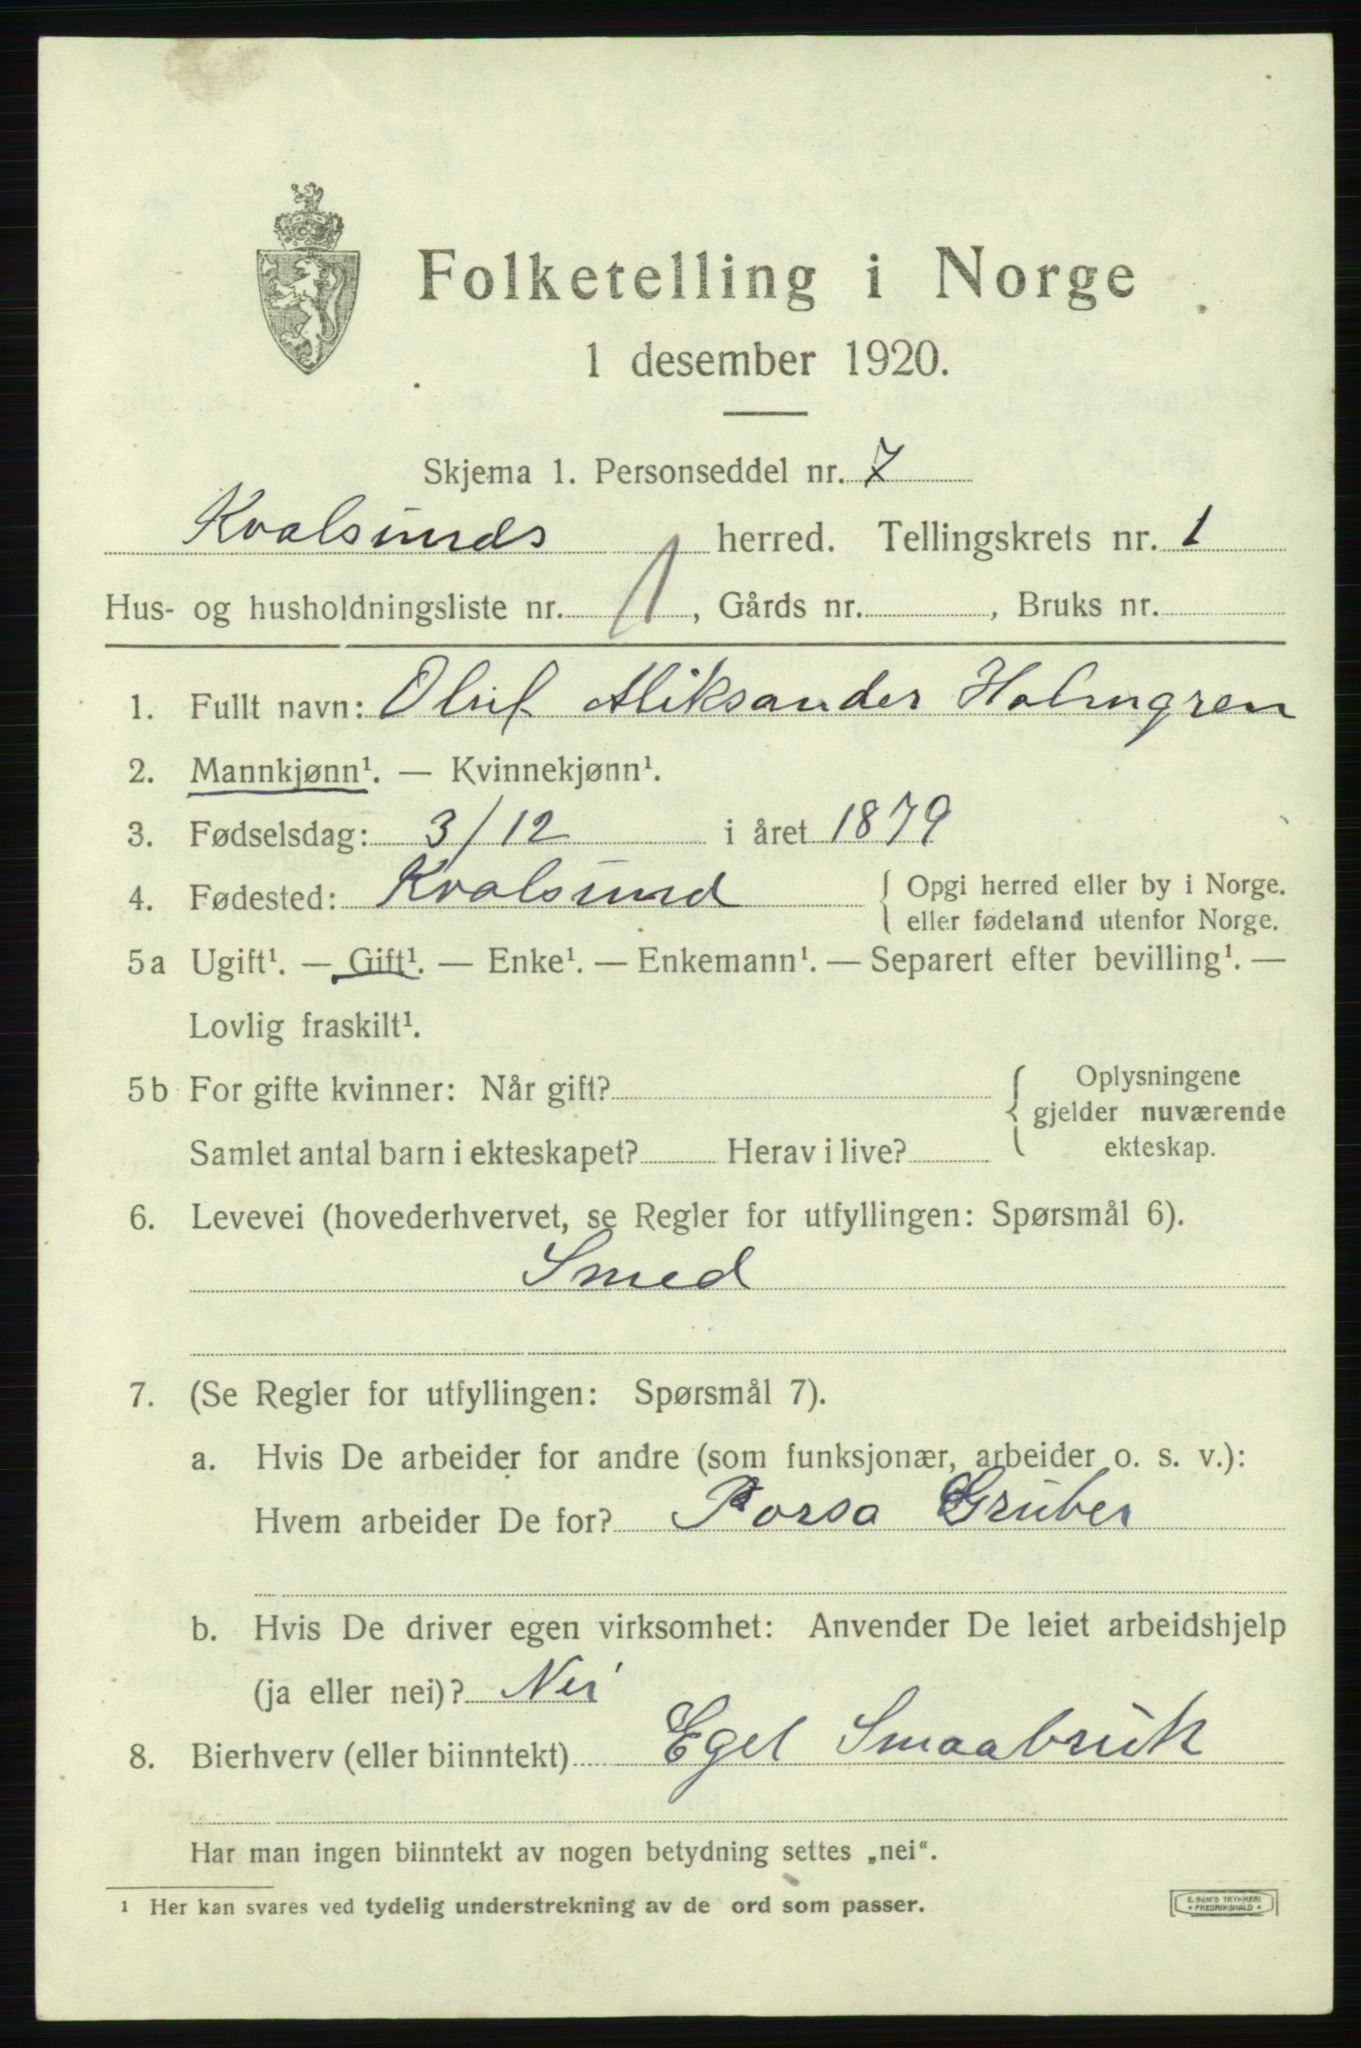 Folketelling i Norge
1 desember 1920.
Skjema 1. Personseddel nr. 7
Kvalsunds herred. Tellingskrets nr. 1
Hus- og husholdningsliste nr. 1, Gårds nr. , Bruks nr.
1. Fullt navn: Oluf Aliksander Holmgren
2. Mannkjønn¹. — Kvinnekjønn¹.
3. Fødselsdag: 3/12 i året 1879
4. Fødested: Kvalsund { Opgi herred eller by i Norge.
eller fødeland utenfor Norge.
5a Ugift¹. — Gift¹. — Enke¹. — Enkemann¹. — Separert efter bevilling¹. —
Lovlig fraskilt¹.
5b For gifte kvinner: Når gift? { Oplysningene
gjelder nuværende
Samlet antal barn i ekteskapet? Herav i live? ekteskap.
6. Levevei (hovederhvervet, se Regler for utfyllingen: Spørsmål 6).
Smed
7. (Se Regler for utfyllingen: Spørsmål 7).
a. Hvis De arbeider for andre (som funksjonær, arbeider o. s. v.):
Hvem arbeider De for? Porsa Gruber
b. Hvis De driver egen virksomhet: Anvender De leiet arbeidshjelp
(ja eller nei)? Nei
8. Bierhverv (eller biinntekt) Eget Smaabruk
Har man ingen biinntekt av nogen betydning settes „nei“.
¹ Her kan svares ved tydelig understrekning av de ord som passer.
E. SEM'S TRYKKERI
* FREDRIKSHALD *